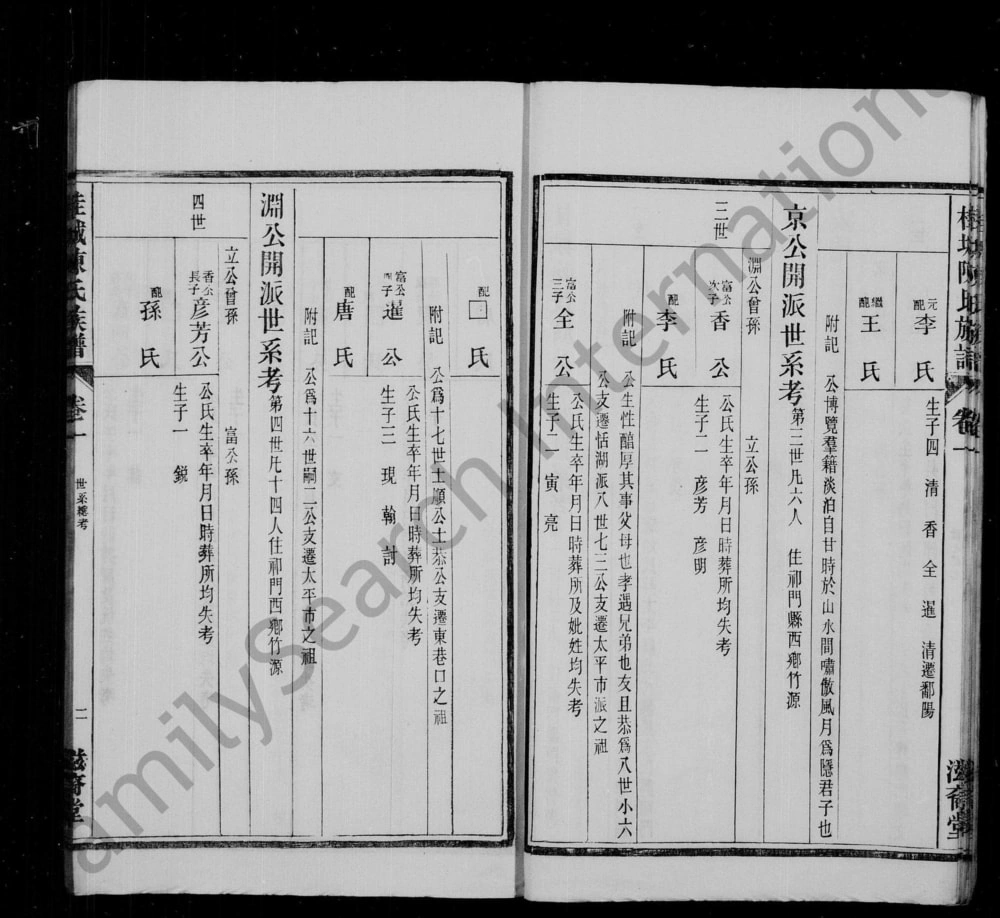 桂城陳氏族譜 卷一 滋育堂
元配 李氏 生子四 清 香 全 暹 清遷鄱陽
繼配 王氏
附記 公博覽羣籍淡泊自甘時於山水間嘯傲風月爲隱君子也
京公開派世系考 第三世凡六人 住祁門縣西鄉竹源
三世 淵公曾孫 立公孫
富公次子 香公 公氏生卒年月日時葬所均失考
配 李氏 生子二 彥芳 彥明
附記 公生性醕厚其事父母也孝遇兄弟也友且恭爲八世小六
公支遷恬湖派八世七三公支遷太平市派之祖
富公三子 全公 公氏生卒年月日時葬所及妣姓均失考
生子二 寅 亮
配 □氏
附記 公爲十七世士順公士恭公支遷東巷口之祖
富公四子 暹公 公氏生卒年月日時葬所均失考
配 唐氏 生子三 現 翰 討
附記 公爲十六世嗣二公支遷太平市之祖
淵公開派世系考 第四世凡十四人住祁門西鄉竹源
四世 立公曾孫 富公孫
香公長子 彥芳公 公氏生卒年月日時葬所均失考
配 孫氏 生子一 銳
桂城陳氏族譜 卷一 世系總考 二 滋育堂
FamilySearch International